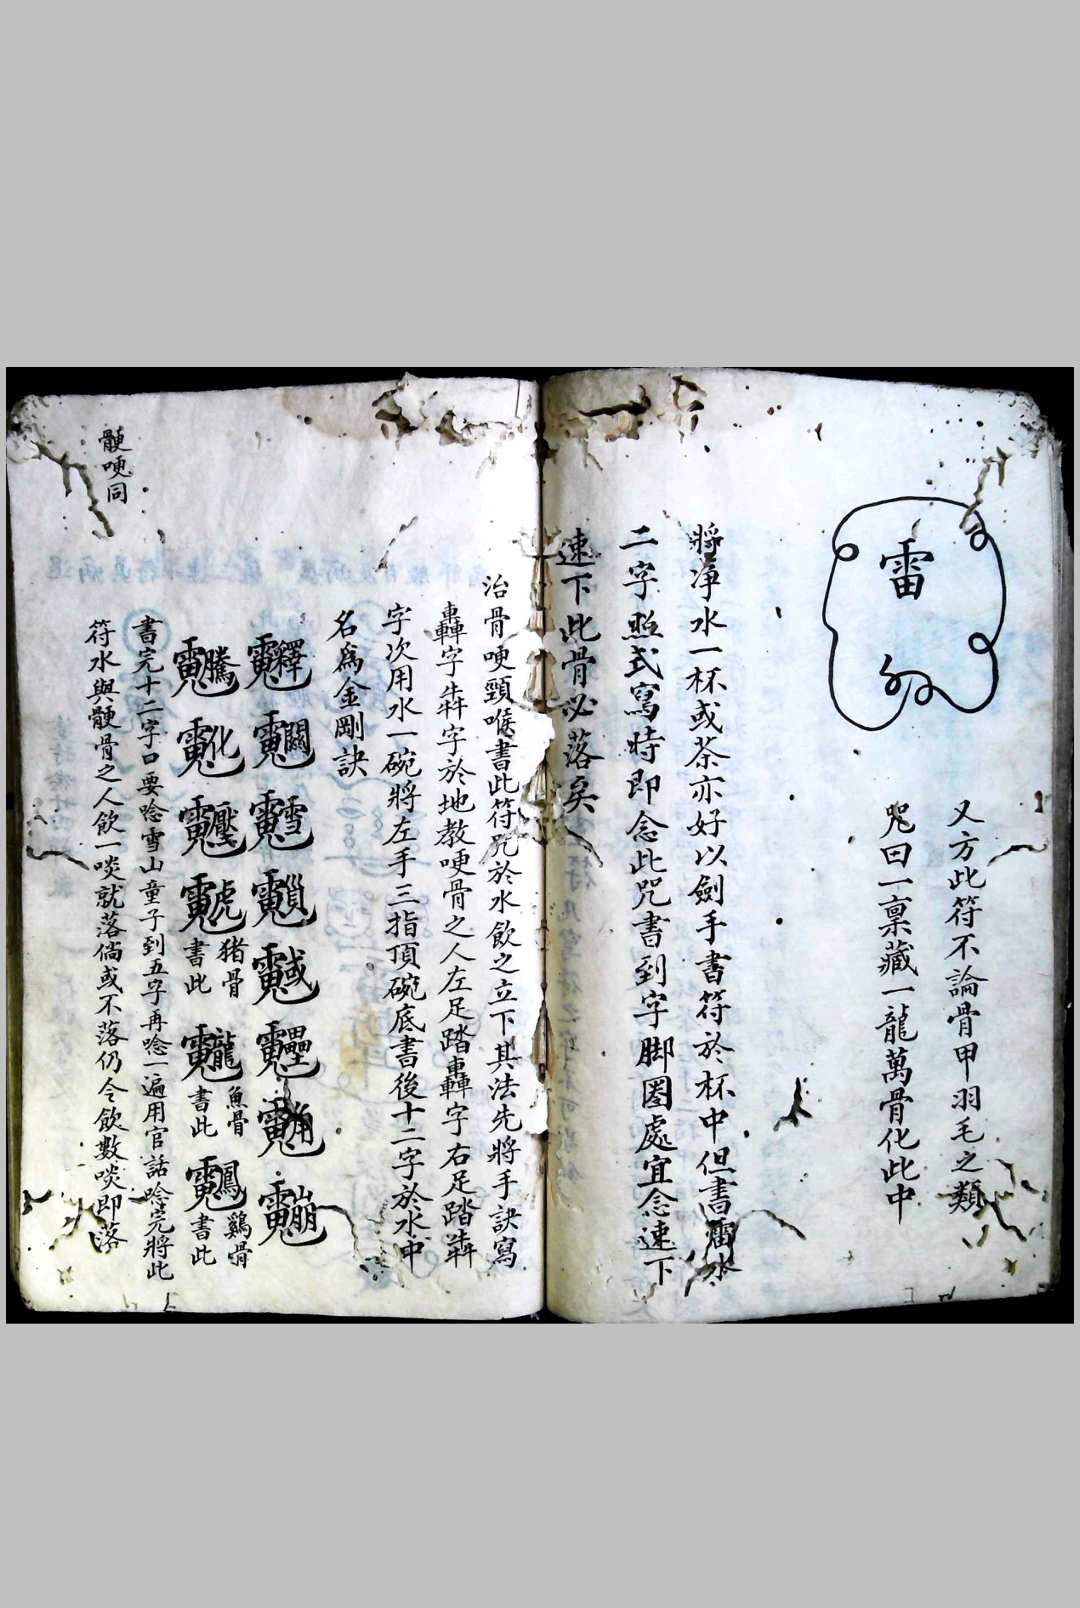 雷
又方此符不論骨甲羽毛之類
咒曰一禀藏一龍萬骨化此中
將淨水一杯或茶亦好以劍手書符於杯中但書雷水
二字照式寫時即念此咒書到字脚圈處宜念速下
速下此骨必落矣
治骨哽頸喉書此符咒於水飲之立下其法先將手訣寫
轟字犇字於地教哽骨之人左足踏轟字右足踏犇
字次用水一碗將左手三指頂碗底書後十二字於水中
名為金剛訣
猪骨
書此
魚骨
書此
鷄骨
書此
書完十二字口要唸雪山童子到五字再唸一遍用官話唸完將此
符水與骾骨之人飲一啖就落倘或不落仍令飲數啖即落
骾哽同